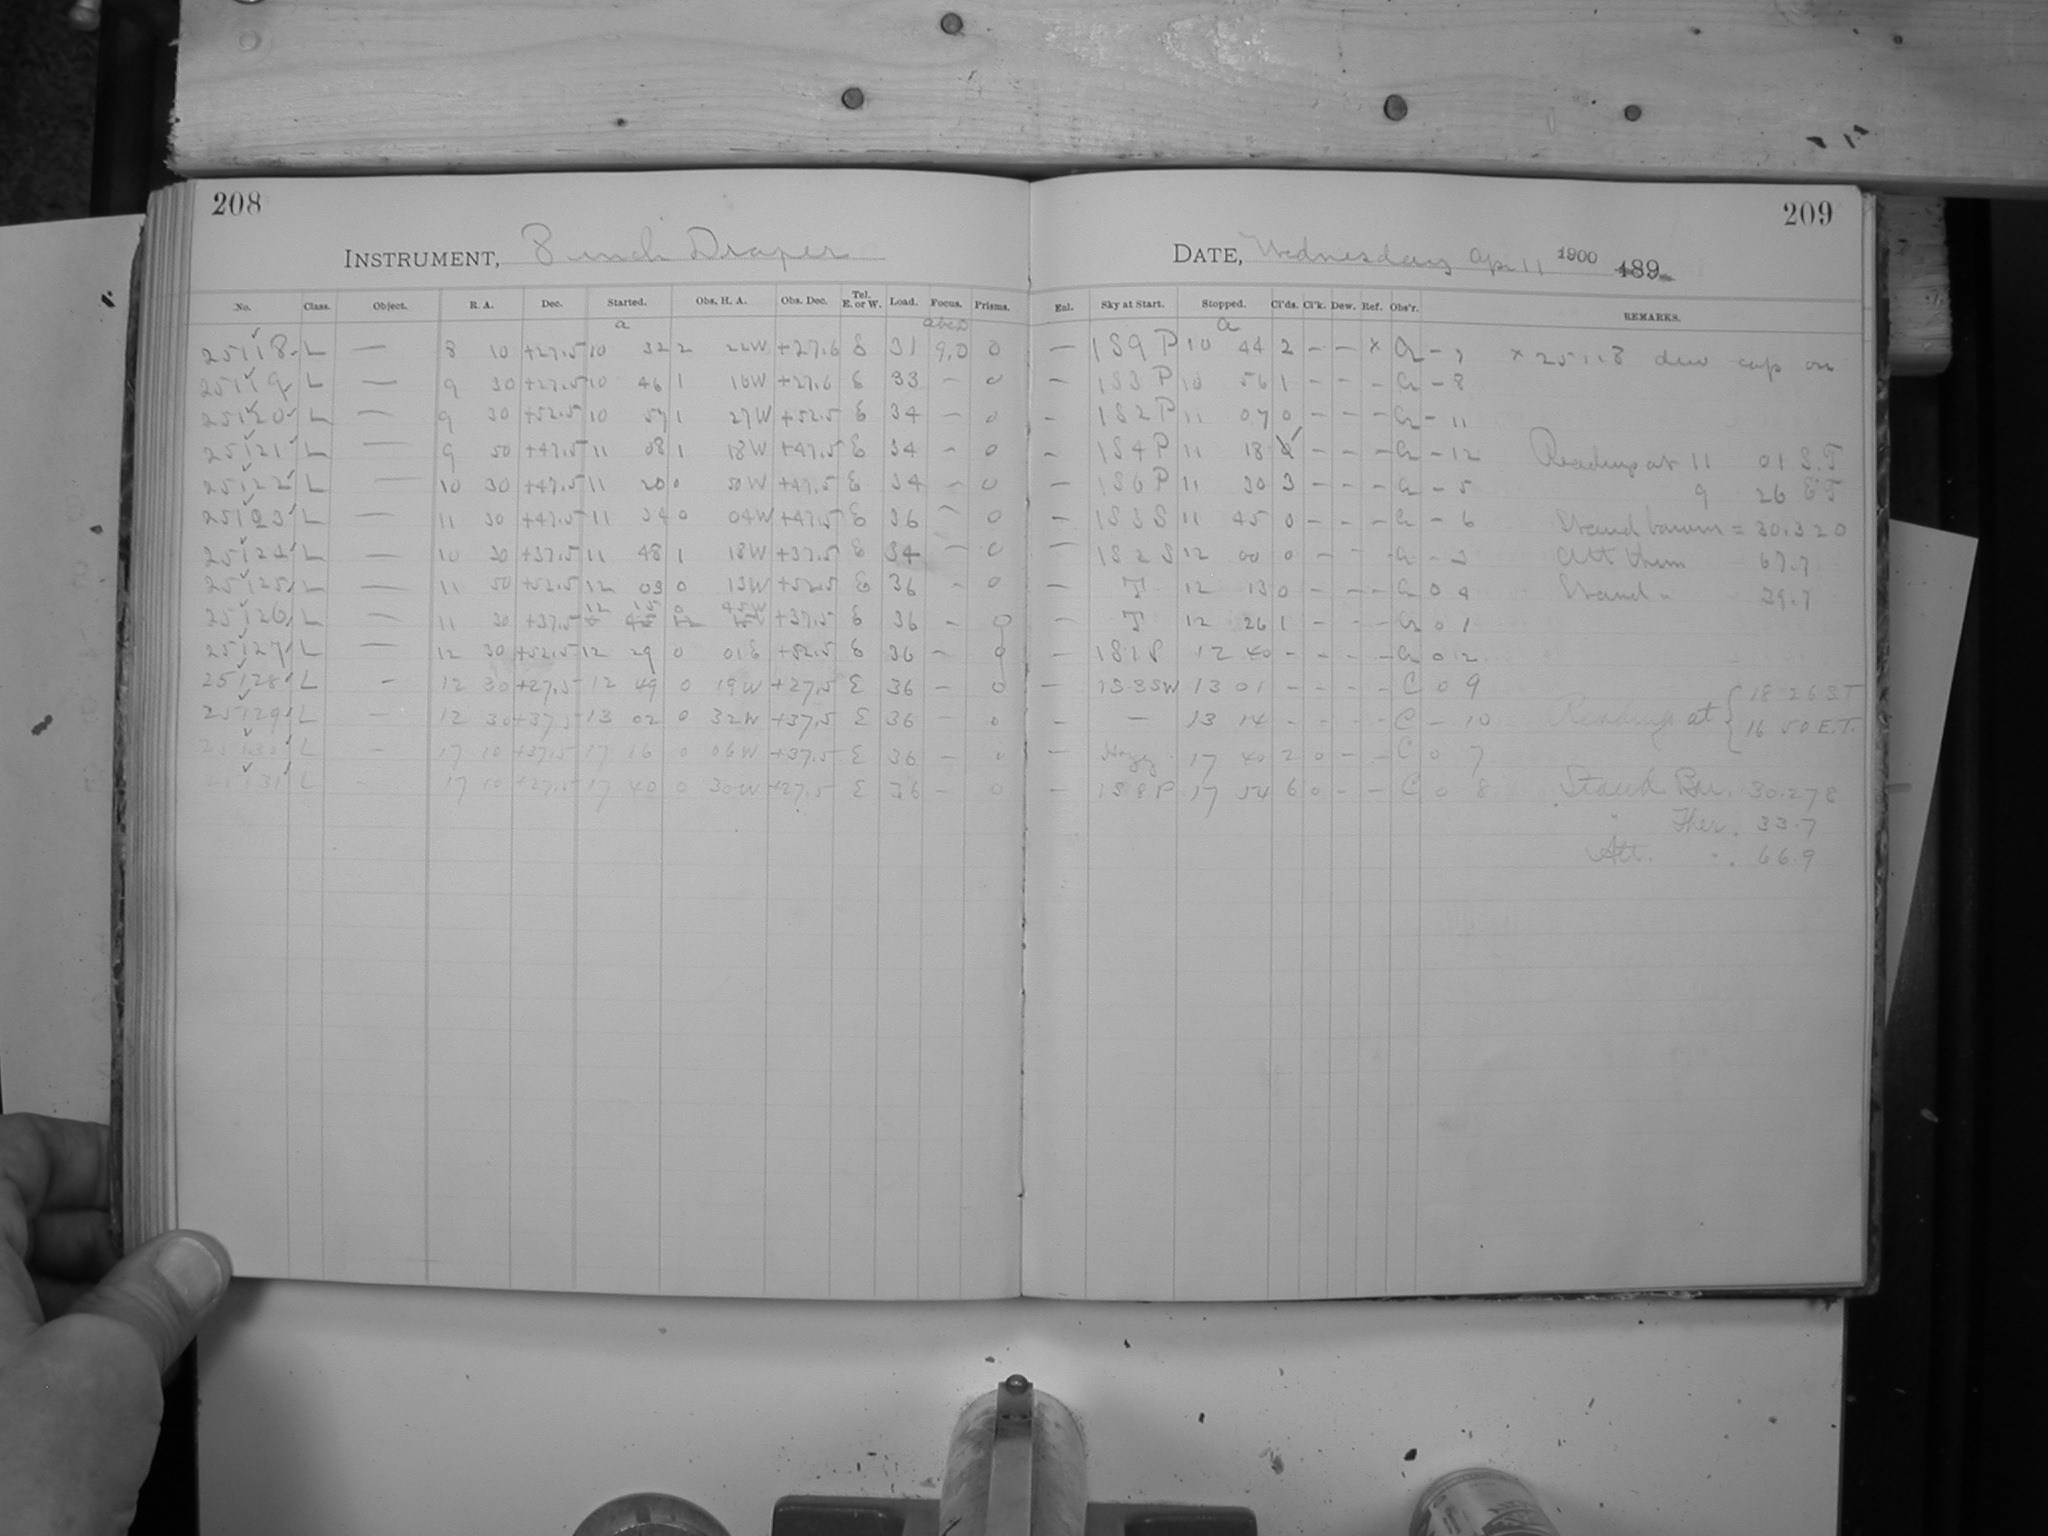 208
209
INSTRUMENT, 8 inch Draper
DATE, Wednesday Apr 11 1900 189
No. Class. Object. R. A. Dec. Started. Obs. H. A. Obs. Dec. Tel. E. or W. Load. Focus. Prisms. Enl. Sky at Start. Stopped. Cl'ds. Cl'k. Dew. Ref. Obs'r. REMARKS.
a a
25118 L — 8 10 +27.5 10 32 2 22W +27.6 E 31 9.0 0 — 1S9P 10 44 2 - - x a - 7 x 25118 dew cap on
25119 L — 9 30 +27.5 10 46 1 16W +27.6 E 33 - 0 — 1S3P 10 56 1 - - - a - 8
25120 L — 9 30 +52.5 10 57 1 27W +52.5 E 34 - 0 - 1S2P 11 07 0 - - - a - 11
25121 L — 9 50 +47.5 11 08 1 18W +47.5 E 34 - 0 - 1S4P 11 18 - - - a - 12 Readings at 11 01 S.T
25122 L — 10 30 +47.5 11 20 0 50W +47.5 E 34 - 0 — 1S6P 11 30 3 - - - a - 5 9 26 E.T
25123 L — 11 30 +47.5 11 34 0 04W +47.5 E 36 - 0 — 1S3S 11 45 0 - - - a - 6 Stand barom = 30.320
25124 L — 10 30 +37.5 11 48 1 18W +37.5 E 34 - 0 — 1S2S 12 00 0 - - - a - 3 Att therm 67.7
25125 L — 11 50 +52.5 12 03 0 13W +52.5 E 36 - 0 — T 12 13 0 - - - a 0 4 Stand " 39.7
25126 L — 11 30 +37.5 12 15 0 45W +37.5 E 36 - 0 — T 12 26 1 - - - a 0 1
25127 L — 12 30 +52.5 12 29 0 01E +52.5 E 36 - 0 — 1S1S 12 40 - - - - a 0 2
25128 L - 12 30 +27.5 12 49 0 19W +27.5 E 36 - 0 — 1S3SW 13 01 - - - - C 0 9 18 26 S.T
25129 L - 12 30 +37.5 13 02 0 32W +37.5 E 36 - 0 - — 13 14 - - - - C - 10 Readings at 16 50 E.T.
25130 L - 17 10 +37.5 17 16 0 06W +37.5 E 36 - 0 — Hazy 17 40 2 0 - - C 0 7
25131 L - 17 10 +27.5 17 40 0 30W +27.5 E 36 - 0 — 1S8P 17 54 6 0 - - C 0 8 Stand. Bar. 30.278
" Ther. 33.7
Att. " . 66.9